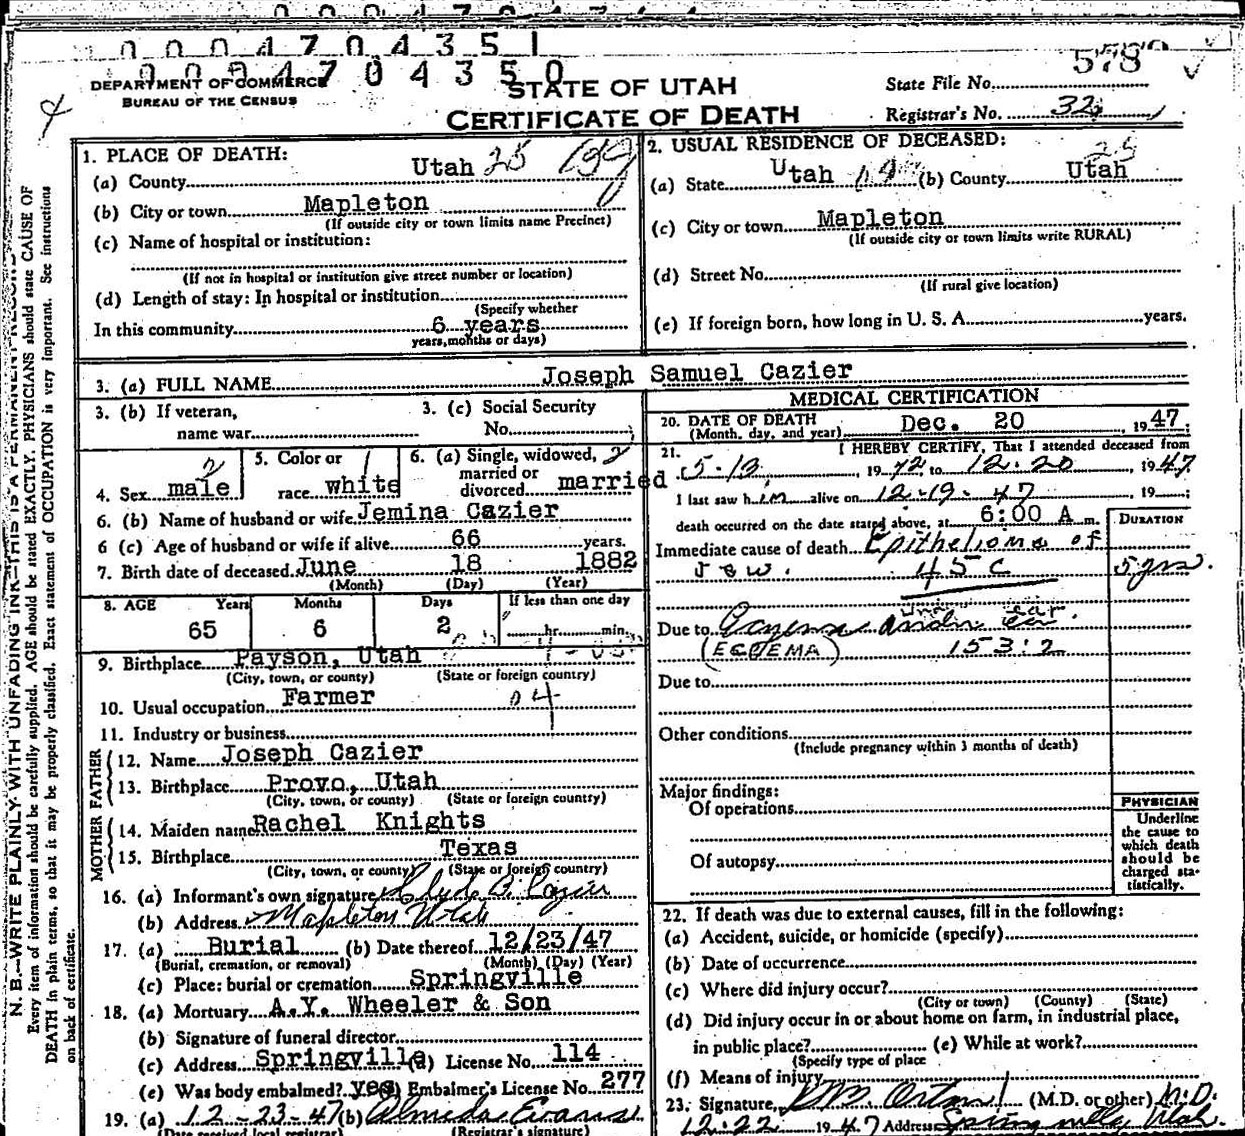 0 0 0 4 7 0 4 3 5 1
0 0 0 4 7 0 4 3 5 0
DEPARTMENT OF COMMERCE
BUREAU OF THE CENSUS
STATE OF UTAH
CERTIFICATE OF DEATH
State File No.
Registrar's No. 32
N. B.—WRITE PLAINLY WITH UNFADING INK—THIS IS A PERMANENT RECORD
Every item of information should be carefully supplied. AGE should be stated EXACTLY. PHYSICIANS should state CAUSE OF
DEATH in plain terms, so that it may be properly classified. Exact statement of OCCUPATION is very important. See instructions
on back of certificate.
1. PLACE OF DEATH:
(a) County Utah 25
(b) City or town Mapleton
(If outside city or town limits name Precinct)
(c) Name of hospital or institution:
(If not in hospital or institution give street number or location)
(d) Length of stay: In hospital or institution
(Specify whether
In this community 6 years
years, months or days)
2. USUAL RESIDENCE OF DECEASED:
25
(a) State Utah (b) County Utah
(c) City or town Mapleton
(If outside city or town limits write RURAL)
(d) Street No.
(If rural give location)
(e) If foreign born, how long in U. S. A. years.
3. (a) FULL NAME Joseph Samuel Cazier
3. (b) If veteran,
name war
3. (c) Social Security
No.
4. Sex male
5. Color or
race white
6. (a) Single, widowed,
married or
divorced married
6. (b) Name of husband or wife Jemina Cazier
6 (c) Age of husband or wife if alive 66 years.
7. Birth date of deceased June 18 1882
(Month) (Day) (Year)
8. AGE Years Months Days If less than one day
65 6 2 hr. min.
9. Birthplace Payson, Utah
(City, town, or county) (State or foreign country)
10. Usual occupation Farmer 04
11. Industry or business
FATHER
12. Name Joseph Cazier
13. Birthplace Provo, Utah
(City, town, or county) (State or foreign country)
MOTHER
14. Maiden name Rachel Knights
15. Birthplace Texas
(City, town, or county) (State or foreign country)
16. (a) Informant's own signature Clyde B. Cazier
(b) Address Mapleton Utah
17. (a) Burial (b) Date thereof 12/23/47
(Burial, cremation, or removal) (Month) (Day) (Year)
(c) Place: burial or cremation Springville
18. (a) Mortuary A.Y. Wheeler & Son
(b) Signature of funeral director
(c) Address Springville (d) License No. 114
(e) Was body embalmed? yes (f) Embalmer's License No. 277
19. (a) 12-23-47 (b) Almeda Evans
(Date received local registrar) (Registrar's signature)
MEDICAL CERTIFICATION
20. DATE OF DEATH Dec. 20, 1947;
(Month, day, and year)
21. I HEREBY CERTIFY, That I attended deceased from
19 to 12-20, 1947
I last saw him alive on 12-19-47, 19 ;
death occurred on the date stated above, at 6:00 A m.
DURATION
Immediate cause of death Epithelioma of
Jaw. 45 c 5 yrs.
under ear.
Due to
(ECZEMA) 153:2
Due to
Other conditions
(Include pregnancy within 3 months of death)
Major findings:
Of operations
Of autopsy
PHYSICIAN
Underline
the cause to
which death
should be
charged sta-
tistically.
22. If death was due to external causes, fill in the following:
(a) Accident, suicide, or homicide (specify)
(b) Date of occurrence
(c) Where did injury occur?
(City or town) (County) (State)
(d) Did injury occur in or about home on farm, in industrial place,
in public place? (e) While at work?
(Specify type of place
(f) Means of injury
23. Signature (M.D. or other) M.D.
12-22 1947 Address Springville, Utah.